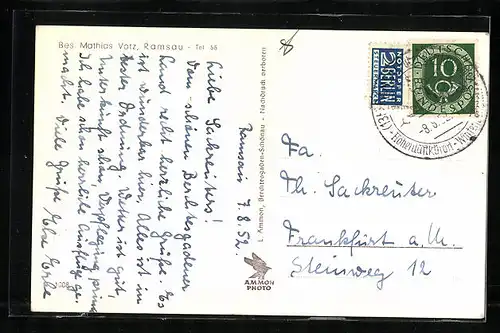 Bes. Mathias Votz, Ramsau - Tel 66
Ramsau 7.8.52.
Liebe Sackreuters!
Vom schönen Berchtesgadener
Land recht herzliche Grüße. Es
ist wunderbar hier, Alles ist in
bester Ordnung, Wetter ist gut,
Unterkunft schön, Verpflegung prima
Ich habe schon herrliche Ausflüge ge-
macht. Viele Grüße
L. Ammon, Berchtesgaden-Schönau - Nachdruck verboten
AMMON
PHOTO
NOTOPFER
2 BERLIN
STEUERMARKE
DEUTSCHE
BUNDESPOST
10
Fa.
Th. Sackreuter
Frankfurt a. M.
Steinweg 12